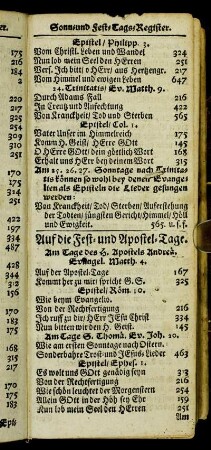 Sonn- und Fest-Tags-Register.
Epistel / Philipp. 3.
Vom Christl. Leben und Wandel 324
Nun lob mein Seel den HErren 251
Vers. Ich bitt o HErr / aus Hertzengr. 217
Vom Himmel und ewigen Leben 647
24. Trinitatis / Ev. Matth. 9.
Durch Adams Fall 216
In Creutz und Anfechtung 422
Von Kranckheit / Tod und Sterben 565
Epistel / Col. 1.
Vater Unser im Himmelreich 175
Komm H. Geist / HErre GOtt 145
O HErre GOtt dein göttlich Wort 168
Erhalt uns HErr bey deinem Wort 163
Am 25. 26. 27. Sonntage nach Trinitatis
können so wol bey denen Evangelien
als Episteln die Lieder gesungen
werden:
Von Kranckheit / Tod / Sterben / Auferstehung
der Todten / jüngsten Gericht / Himmel / Höll
und Ewigkeit. 565. u. s. f.
Auf die Fest- und Apostel-Tage.
Am Tage des H. Apostels Andreä.
Evangel. Matth. 4.
Auf der Apostel-Tage 167
Kommt her zu mir / spricht G. S. 325
Epistel / Röm. 10.
Wie beym Evangelio.
Von der Rechtfertigung 216
Ich ruff zu dir / HErr JEsu Christ 334
Nun bitten wir den H. Geist. 145
Am Tage S. Thomä. Ev. Joh. 20.
Wie am ersten Sonntage nach Ostern.
Sonderbahre Trost- und JEsus-Lieder 463
Epistel / Ephes. 1.
Es wolt uns GOtt genädig seyn 230
Von der Rechtfertigung 216
Wie schön leuchtet der Morgenstern 254
Allein GOtt in der Höh sey Ehr 159
Nun lob mein Seel den HErren 251
Am